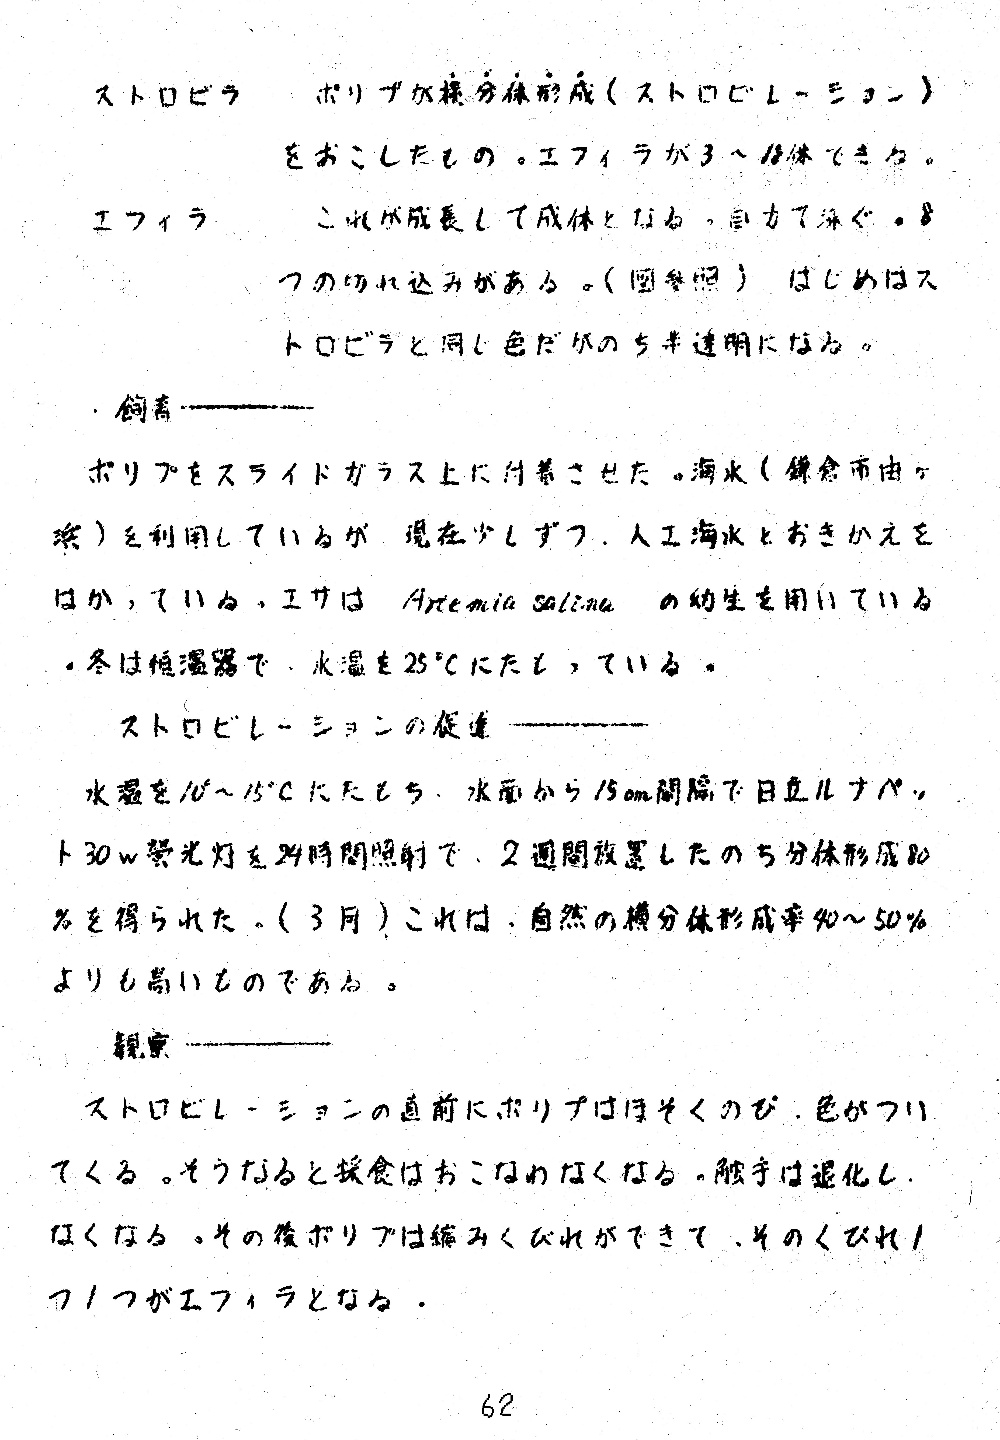 ストロビラ　ポリプが横分体形成(ストロビレーション)
をおこしたもの。エフィラが3～18体できる。
エフィラ　これが成長して成体となる。自力で泳ぐ。8
つの切れ込みがある。(図参照)　はじめはス
トロビラと同じ色だがのち半透明になる。
・飼育――――
ポリプをスライドガラス上に付着させた。海水(鎌倉市由ヶ
浜)を利用しているが、現在少しずつ、人工海水とおきかえを
はかっている。エサは Artemia salina の幼生を用いている
。冬は恒温器で、水温を25℃にたもっている。
ストロビレーションの促進――――
水温を10°～15℃にたもち、水面から15cm間隔で日立ルナペッ
ト30w螢光灯を24時間照射で、2週間放置したのち分体形成80
%を得られた。(3月)これは、自然の横分体形成率40～50%
よりも高いものである。
観察――――
ストロビレーションの直前にポリプはほそくのび、色がつい
てくる。そうなると採食はおこなわなくなる。触手は退化し、
なくなる。その後ポリプは縮みくびれができて、そのくびれ1
つ1つがエフィラとなる。
62